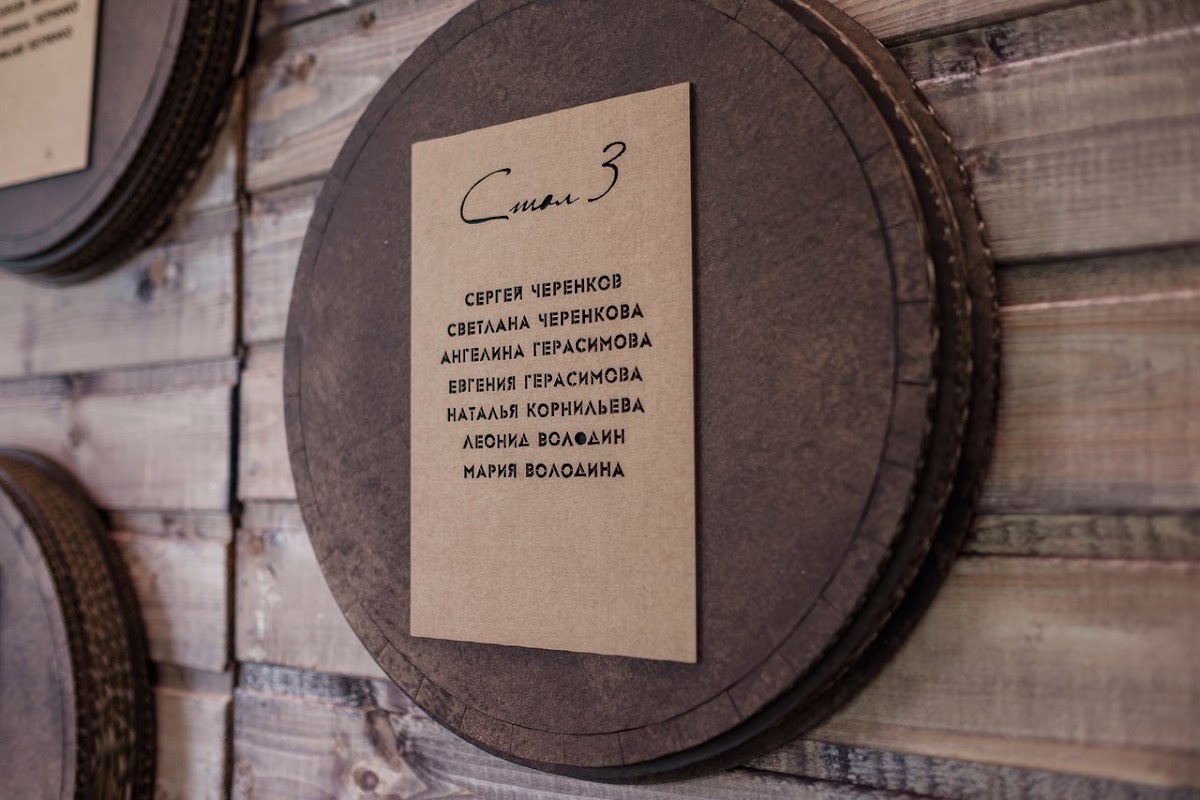 Стол 3
СЕРГЕЙ ЧЕРЕНКОВ
СВЕТЛАНА ЧЕРЕНКОВА
АНГЕЛИНА ГЕРАСИМОВА
ЕВГЕНИЯ ГЕРАСИМОВА
НАТАЛЬЯ КОРНИЛЬЕВА
ЛЕОНИД ВОЛОДИН
МАРИЯ ВОЛОДИНА